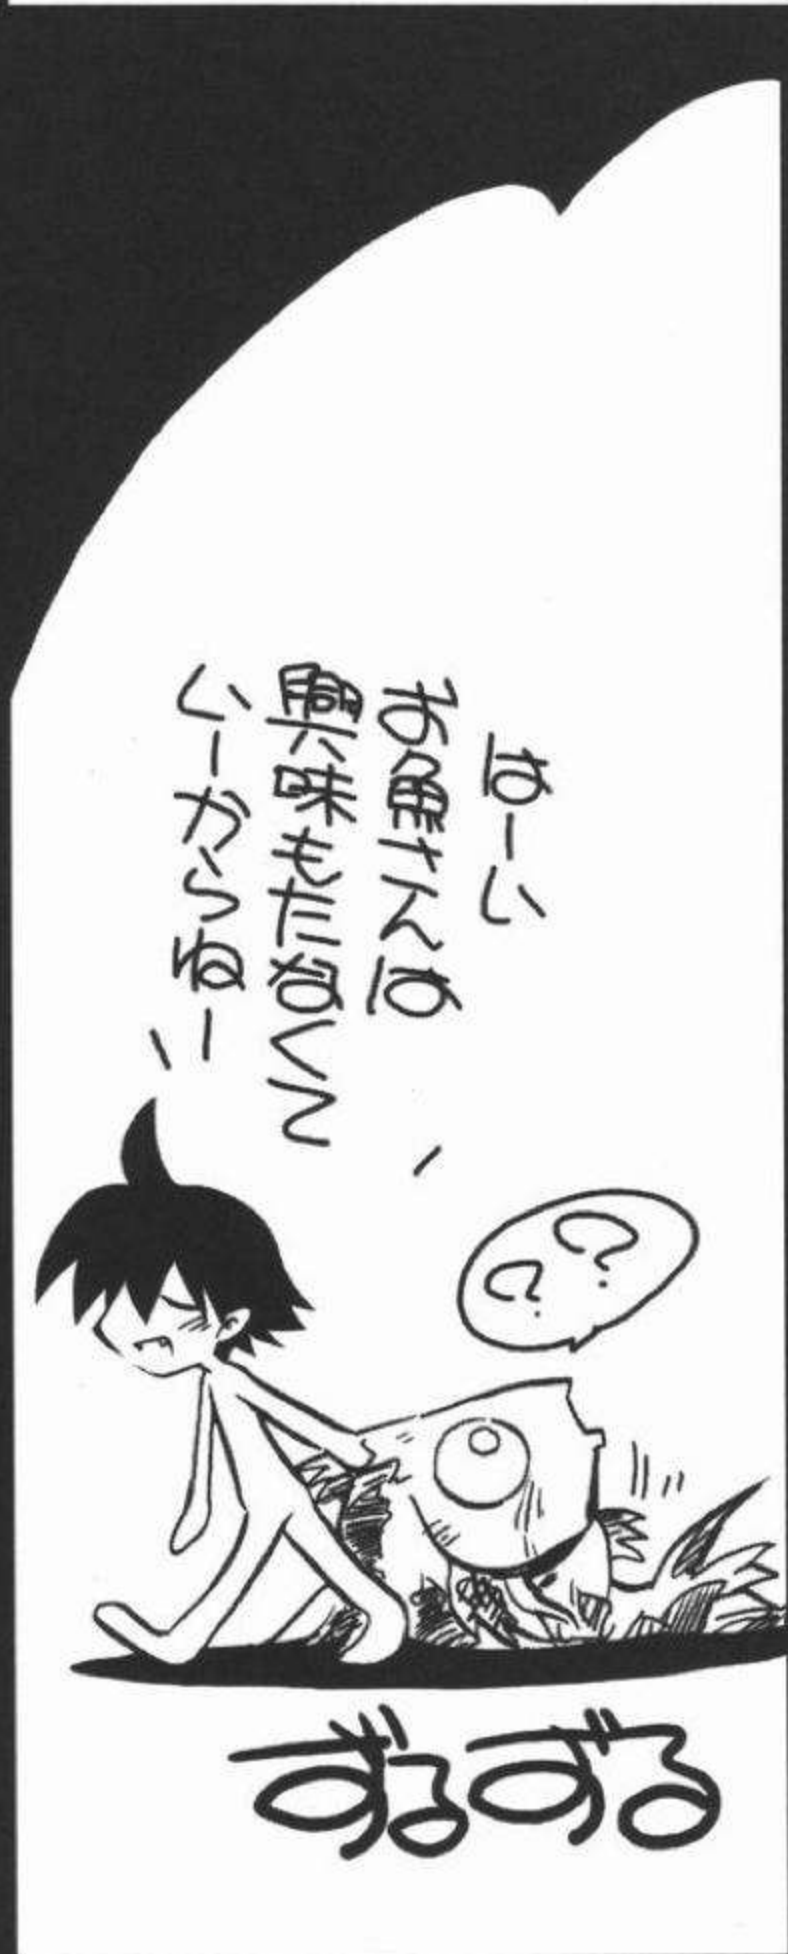 はーい
お魚さんは
興味もたなくて
いーからねー
??
ずるずる